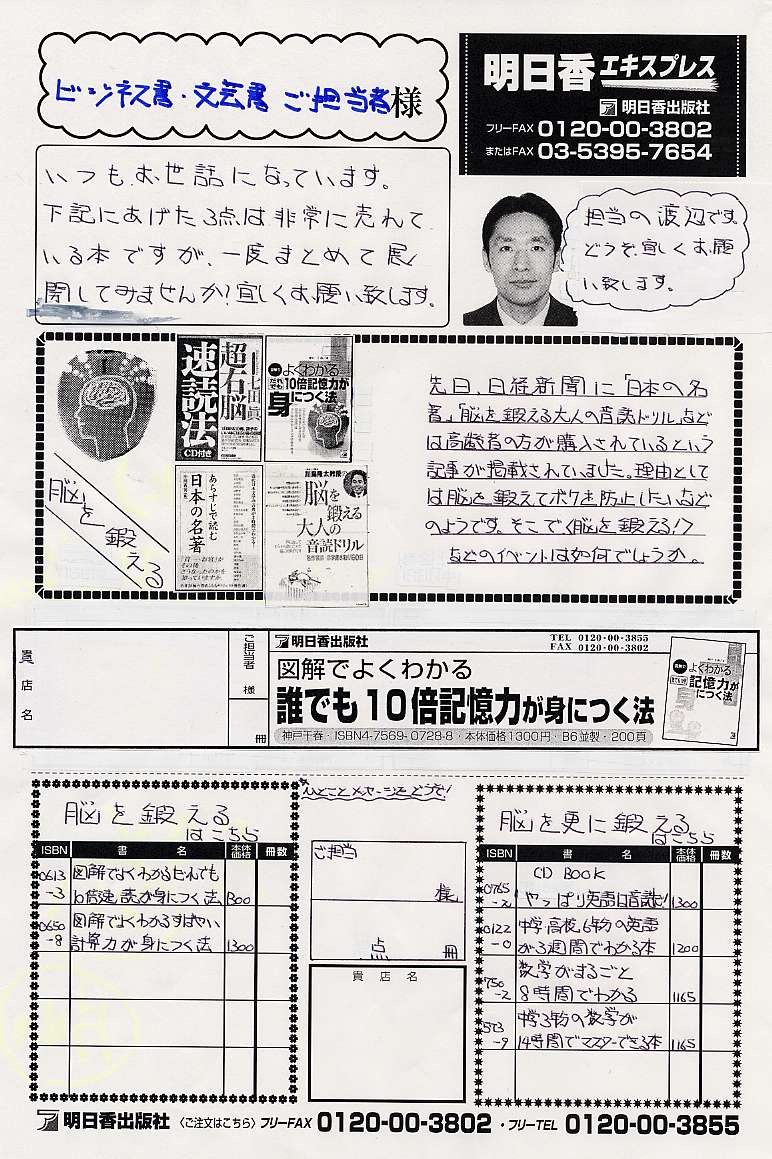 ビジネス書・文芸書 ご担当者様
明日香エキスプレス
明日香出版社
フリーFAX 0120-00-3802
またはFAX 03-5395-7654
いつもお世話になっています。
下記にあげた3点は非常に売れて
いる本ですが、一度まとめて展
開してみませんか!宜しくお願い致します。
担当の渡辺です。
どうぞ宜しくお願
い致します。
七田眞
超右脳
速読法
CD付き
図解でよくわかる
だれでも
10倍記憶力が
身につく法
あらすじで読む
日本の名著
川島隆太教授の
脳を
鍛える
大人の
音読ドリル
「脳」を鍛える
先日、日経新聞に「日本の名
著」「脳を鍛える大人の音読ドリル」などは
高齢者の方が購入されているという
記事が掲載されていました。理由として
は「脳」を鍛えてボケを防止したいなど
のようです。そこで<「脳」を鍛える!>
などのイベントは如何でしょうか。
貴店名
ご担当者
様
冊
明日香出版社
TEL 0120-00-3855
FAX 0120-00-3802
図解でよくわかる
誰でも10倍記憶力が身につく法
神戸千春・ISBN4-7569-0728-8・本体価格1300円・B6並製・200頁
「脳」を鍛える
はこちら
ISBN 書名 本体価格 冊数
0613-3 図解でよくわかるだれでも10倍速読が身につく法 1300
0650-8 図解でよくわかるすばやい計算力が身につく法 1300
ひとことメッセージをどうぞ!
ご担当
様
点 冊
貴店名
「脳」を更に鍛える
はこちら
ISBN 書名 本体価格 冊数
0765-2 CD BOOK やっぱり英語は音読! 1300
0122-0 中学・高校6年分の英語が3週間でわかる本 1200
750-2 数学がまるごと8時間でわかる 1165
573-9 中学3年分の数学が14時間でマスターできる本 1165
明日香出版社 〈ご注文はこちら〉フリーFAX 0120-00-3802 ・フリーTEL 0120-00-3855